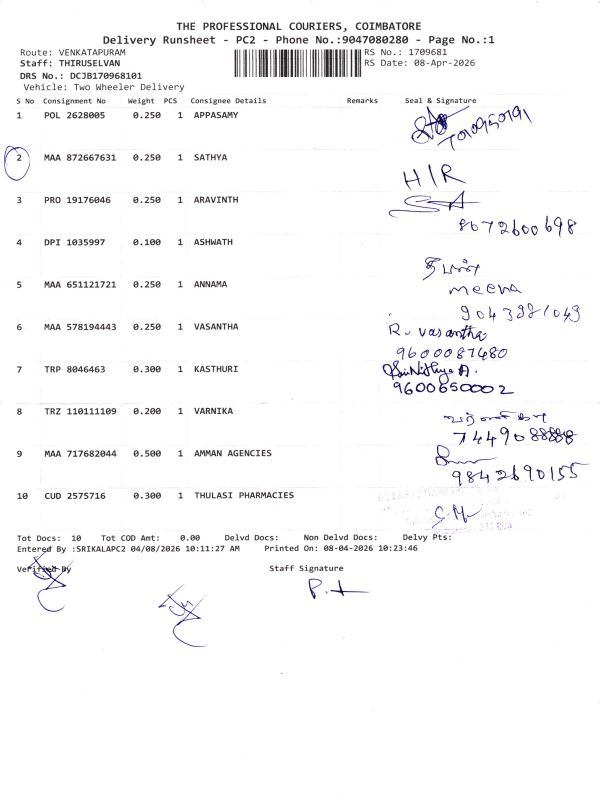 THE PROFESSIONAL COURIERS, COIMBATORE
Delivery Runsheet - PC2 - Phone No.:9047080280 - Page No.:1
Route: VENKATAPURAM RS No.: 1709681
Staff: THIRUSELVAN RS Date: 08-Apr-2026
DRS No.: DCJB170968101
Vehicle: Two Wheeler Delivery
S No Consignment No Weight PCS Consignee Details Remarks Seal & Signature
1 POL 2628005 0.250 1 APPASAMY
2 MAA 872667631 0.250 1 SATHYA
H/R
3 PRO 19176046 0.250 1 ARAVINTH
8072600698
4 DPI 1035997 0.100 1 ASHWATH
5 MAA 651121721 0.250 1 ANNAMA
meena
9043981049
6 MAA 578194443 0.250 1 VASANTHA
R. vasantha
9600087480
7 TRP 8046463 0.300 1 KASTHURI
9600650002
8 TRZ 110111109 0.200 1 VARNIKA
9 MAA 717682044 0.500 1 AMMAN AGENCIES
9842690155
10 CUD 2575716 0.300 1 THULASI PHARMACIES
Tot Docs: 10 Tot COD Amt: 0.00 Delvd Docs: Non Delvd Docs: Delvy Pts:
Entered By :SRIKALAPC2 04/08/2026 10:11:27 AM Printed On: 08-04-2026 10:23:46
Verified By Staff Signature